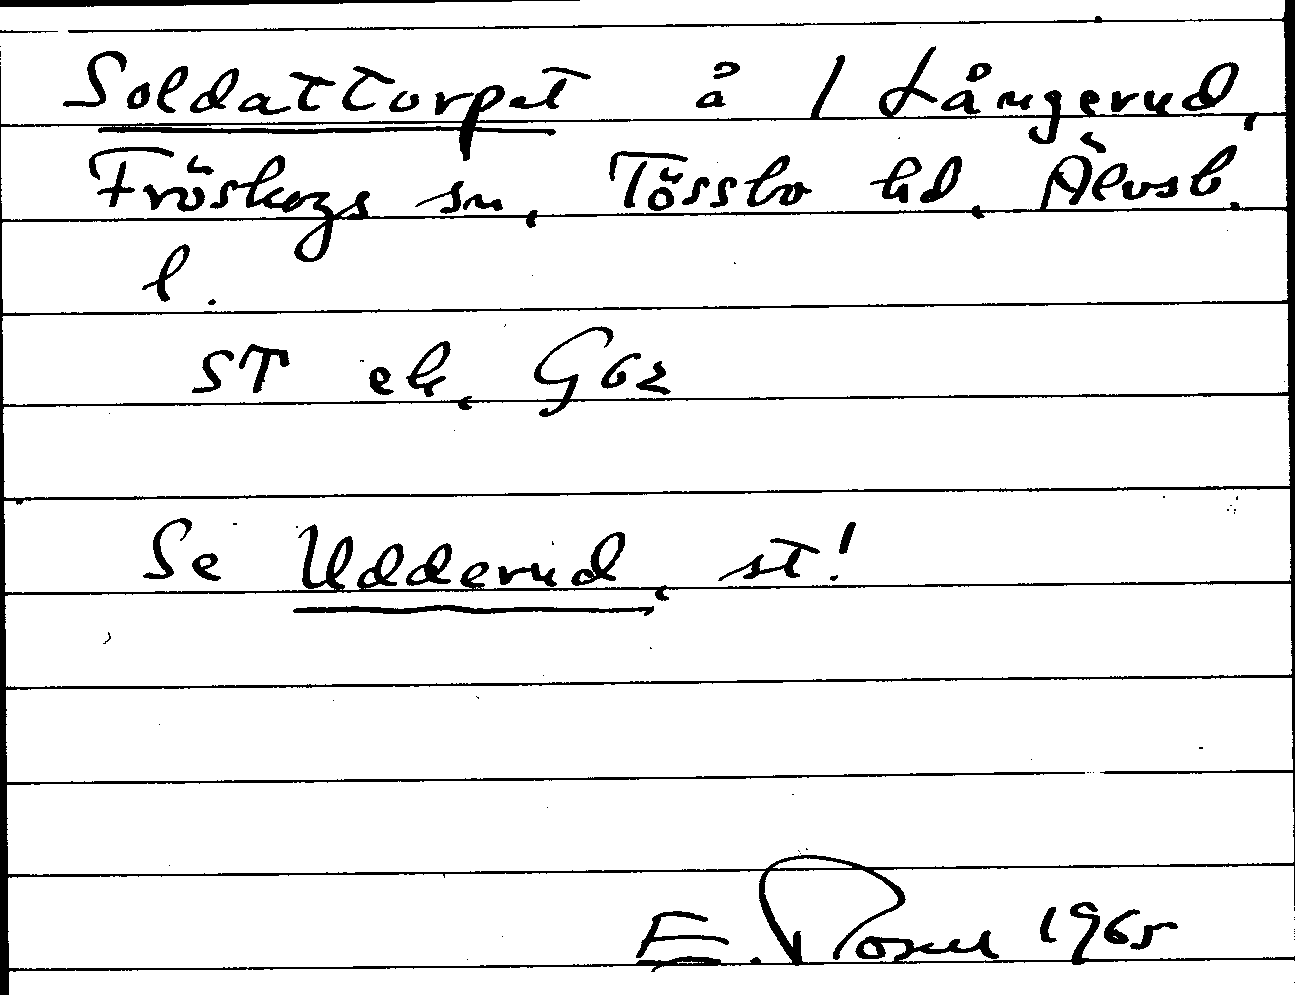 Soldattorpet å 1 Långerud,
Fröskogs sn, Tössbo hd, Älvsb.
l.
ST ek, G62
Se Udderud, st!
E. Rosell 1965